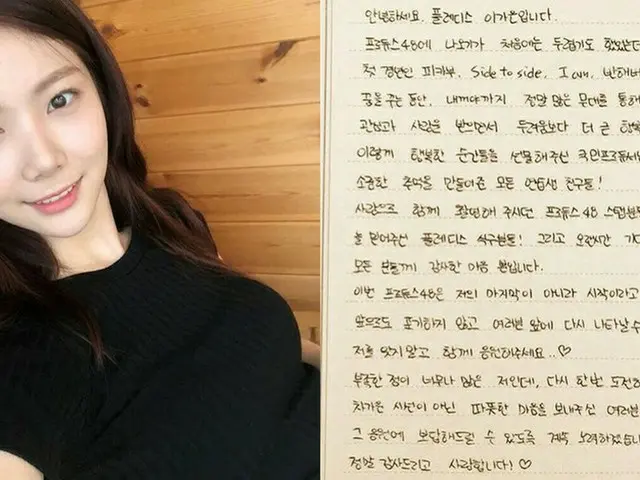 안녕하세요. 플레디스 이가은입니다.
프로듀스48에 나오기가 처음에는 두렵기도 했었는데
첫 경연인 피카부, Side to side, I am, 반해버
꿈을 꾸는 동안, 내꺼야까지 정말 많은 무대를 통해
관심과 사랑을 받으면서 두려움보다 더 큰 행복
이렇게 행복한 순간들을 선물해주신 국민프로듀서
소중한 추억을 만들어준 모든 연습생 친구들!
사랑으로 함께 촬영해 주시던 프로듀스 48 스텝분들
늘 믿어주신 플레디스 식구분들! 그리고 오랜시간 기다
모든 분들께 감사한 마음 뿐입니다.
이번 프로듀스48은 저의 마지막이 아니라 시작이라고
앞으로도 포기하지 않고 여러분 앞에 다시 나타날 수
저를 잊지말고 함께 응원해주세요..♡
부족한 점이 너무나 많은 저인데, 다시 한번 도전하
차가운 시선이 아닌 따뜻한 마음을 보내주신 여러분
그 응원에 보답해드릴 수 있도록 계속 노력하겠습니
정말 감사드리고 사랑합니다! ♡